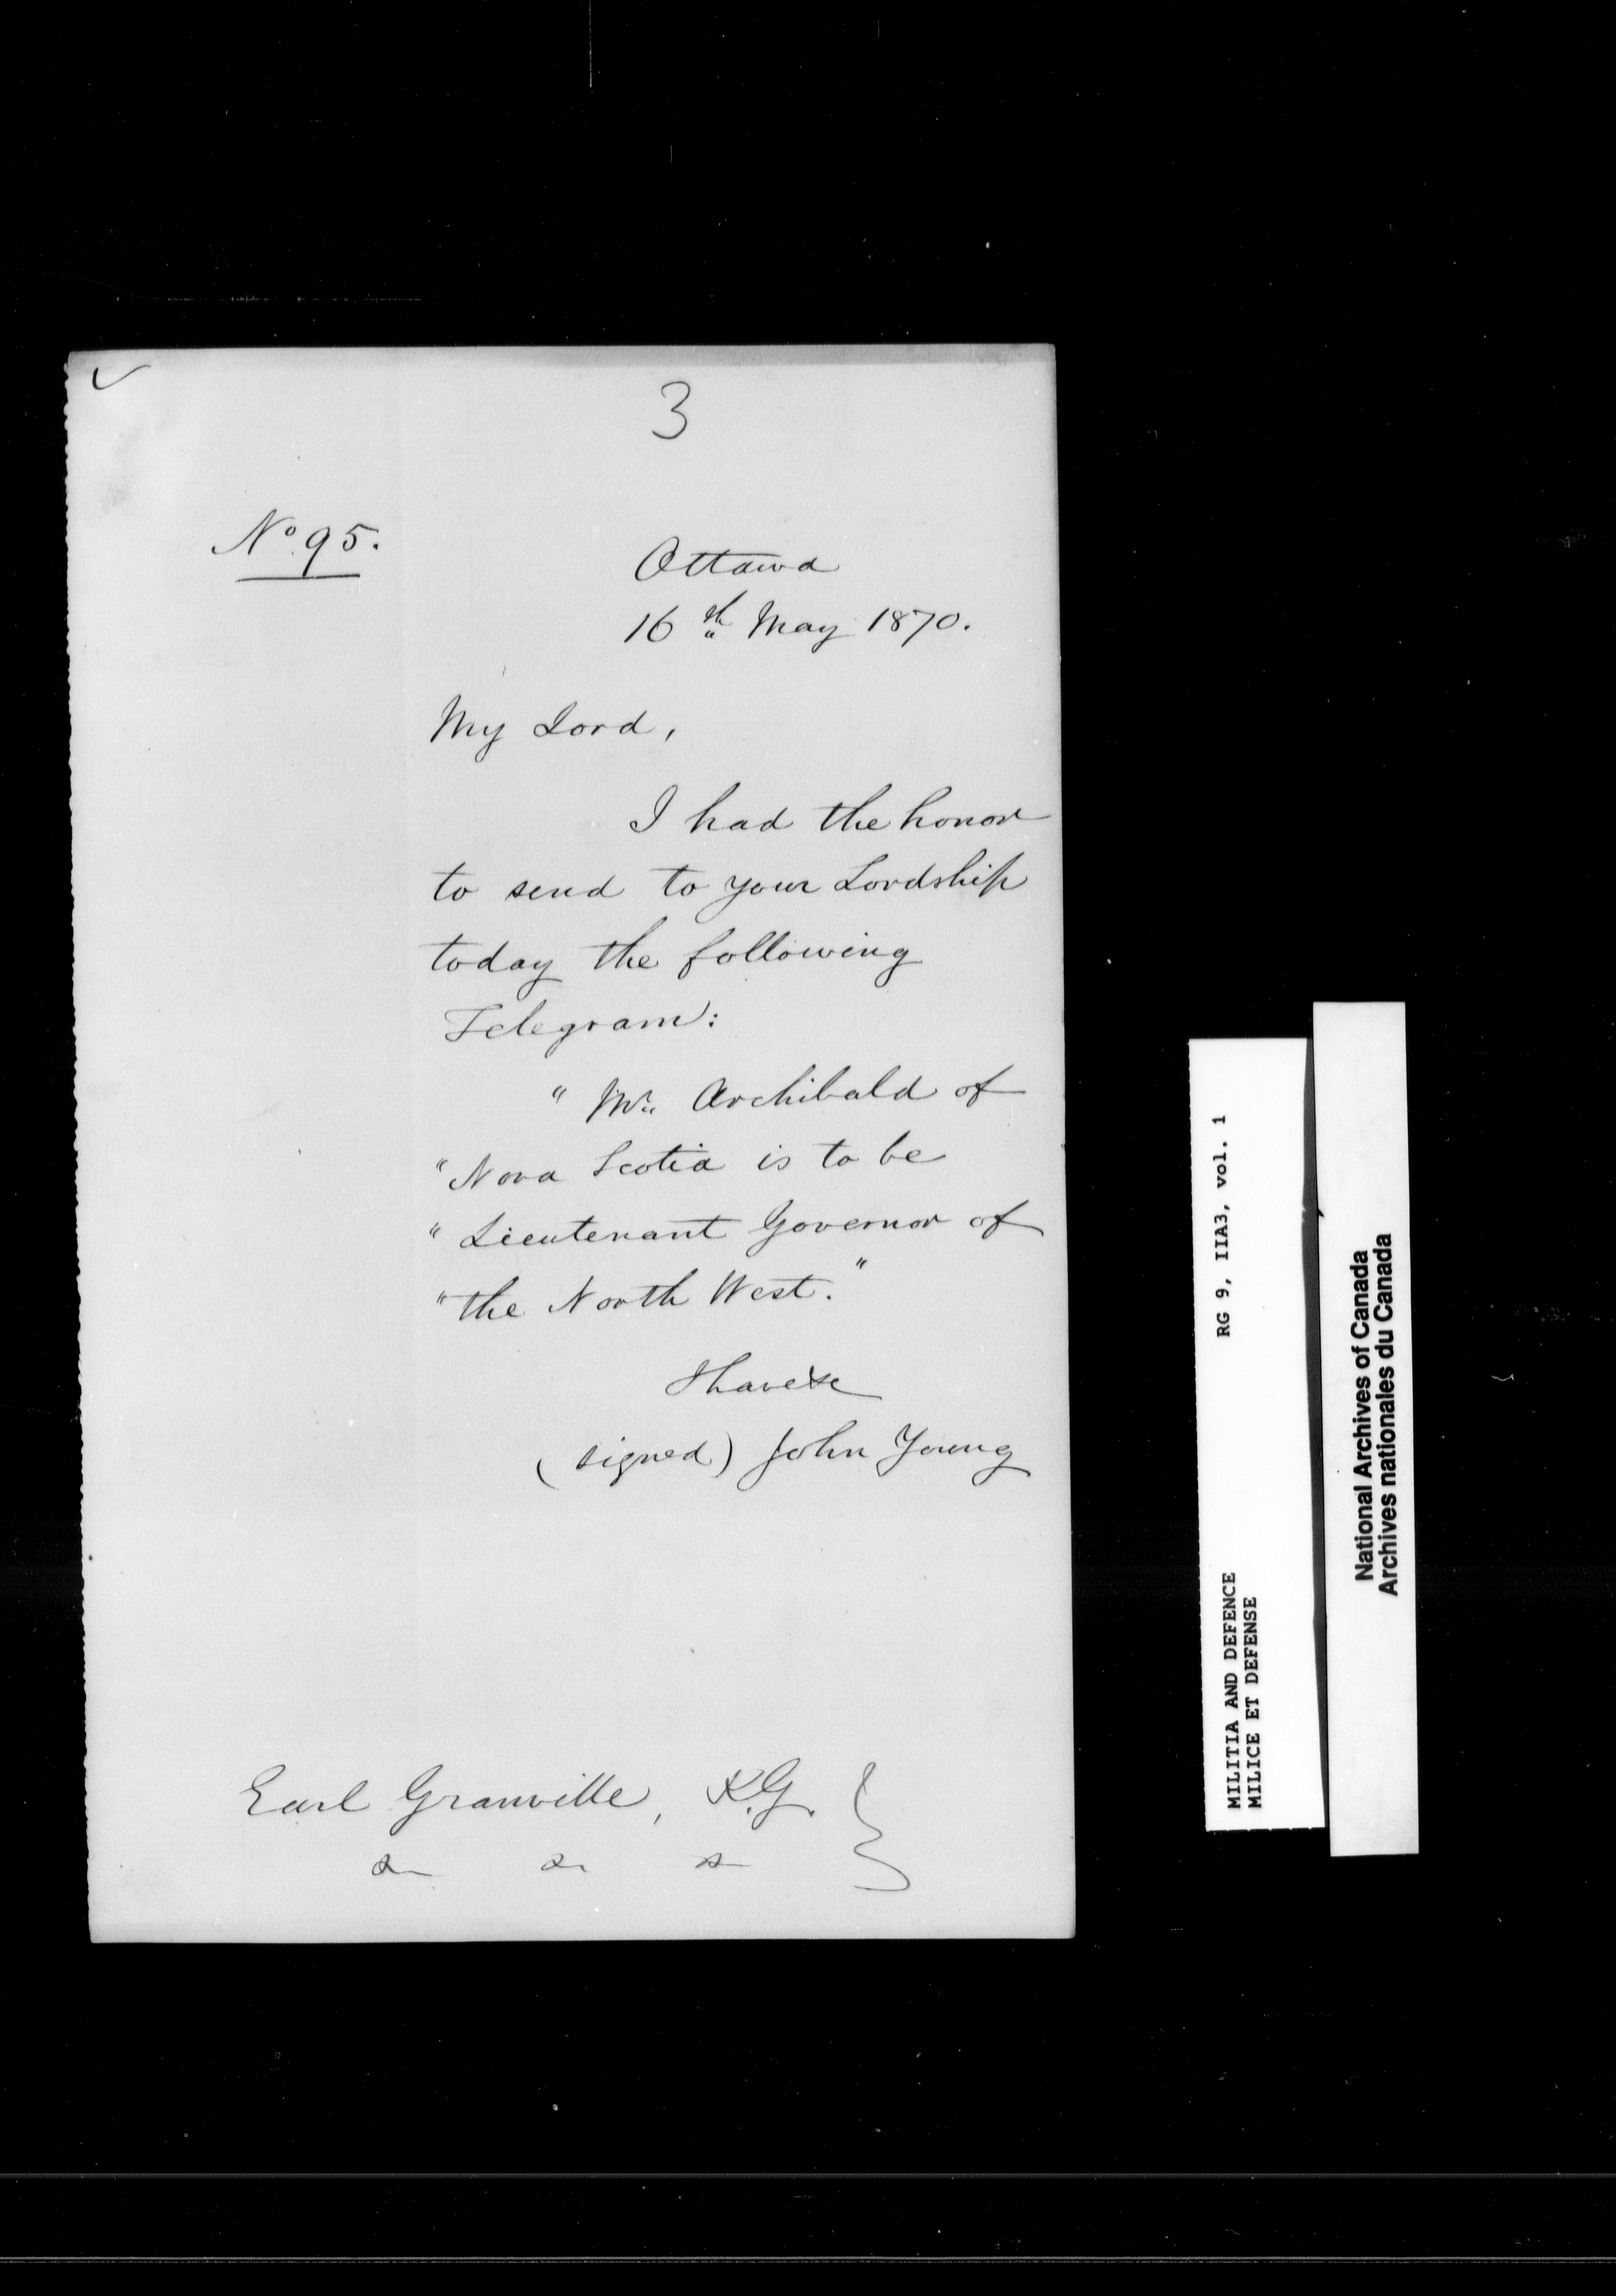 3
No. 95.
Ottawa
16th May 1870.
My Lord,
I had the honor
to send to your Lordship
today the following
Telegram:
" Mr. Archibald of
" Nova Scotia is to be
" Lieutenant Governor of
" the North West."
I have &c
(signed) John Young
Earl Granville, K.G.
&c &c &c
MILITIA AND DEFENCE RG 9, IIA3, vol. 1
MILICE ET DEFENSE
National Archives of Canada
Archives nationales du Canada